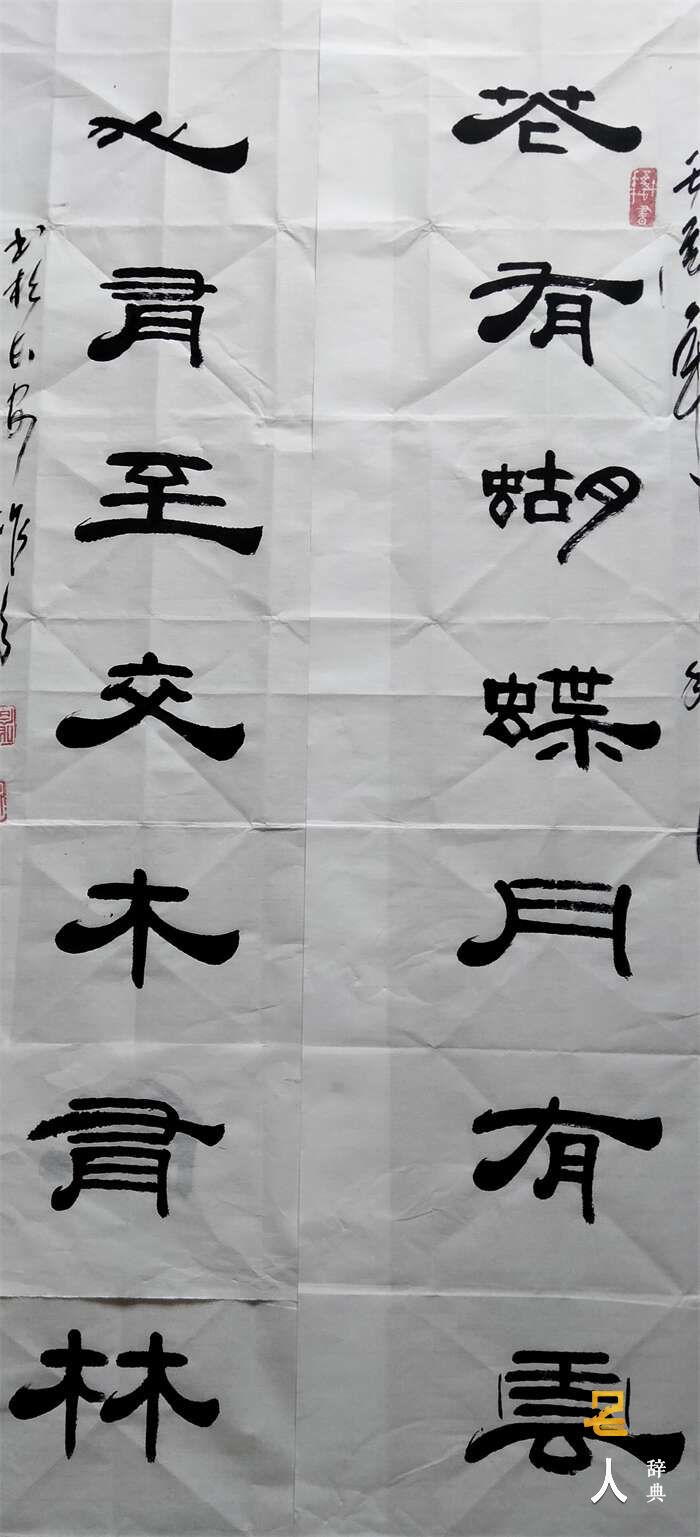 花有蝴蝶月有雲
人有至交木有林
书於长安
名人
辞典